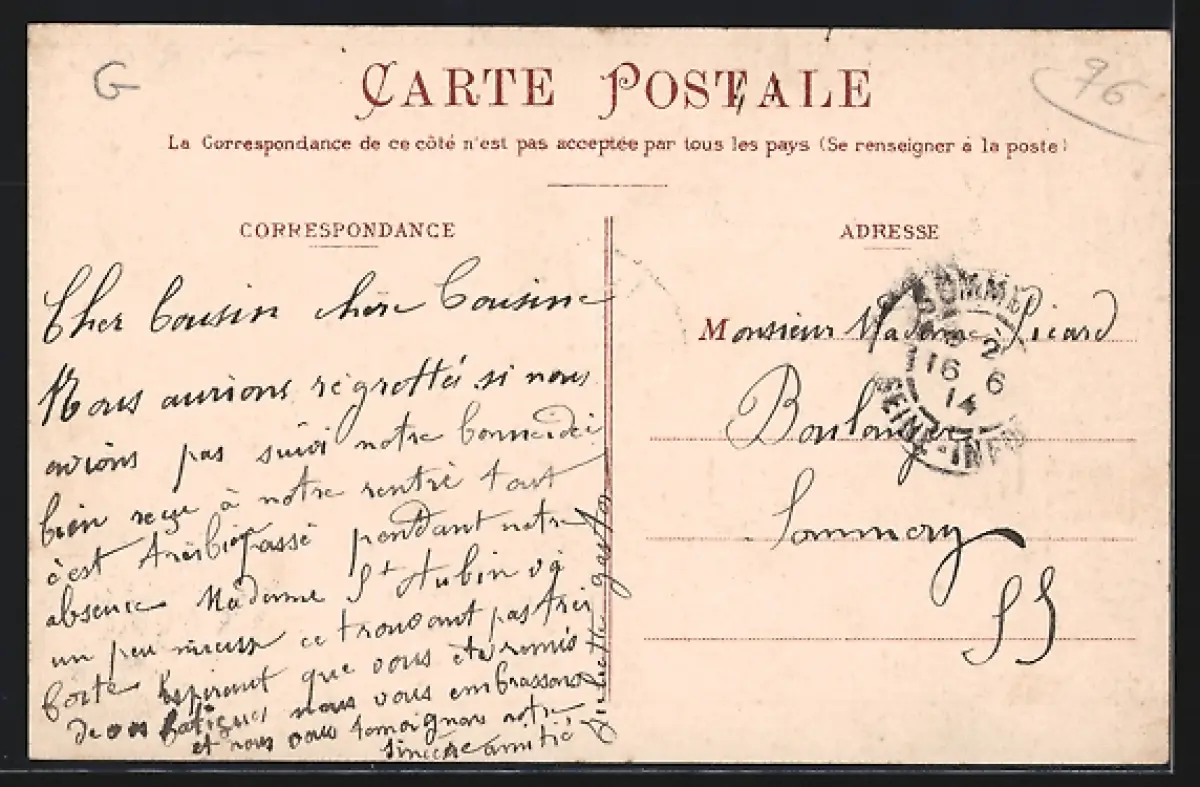 G
96
CARTE POSTALE
La Correspondance de ce côté n'est pas acceptée par tous les pays (Se renseigner à la poste)
CORRESPONDANCE
Cher Cousin chère Cousine
Nous aurions régrettés si nous
avions pas suivi notre bonne idée
bien reçu à notre rentré tout
c'est très bien passé pendant notre
absence Madame St Aubin va
un peu mieux ce trouvant pas très
forte Espérant que vous ete remis
De vos fatigues nous vous embrassons
et nous vous temoignons notre
sincère amitié
Juliette gaston
ADRESSE
Monsieur Madame Picard
Boulanger
Sommery
SI
SOMME
2
16 6
14
SEINE-INFRE